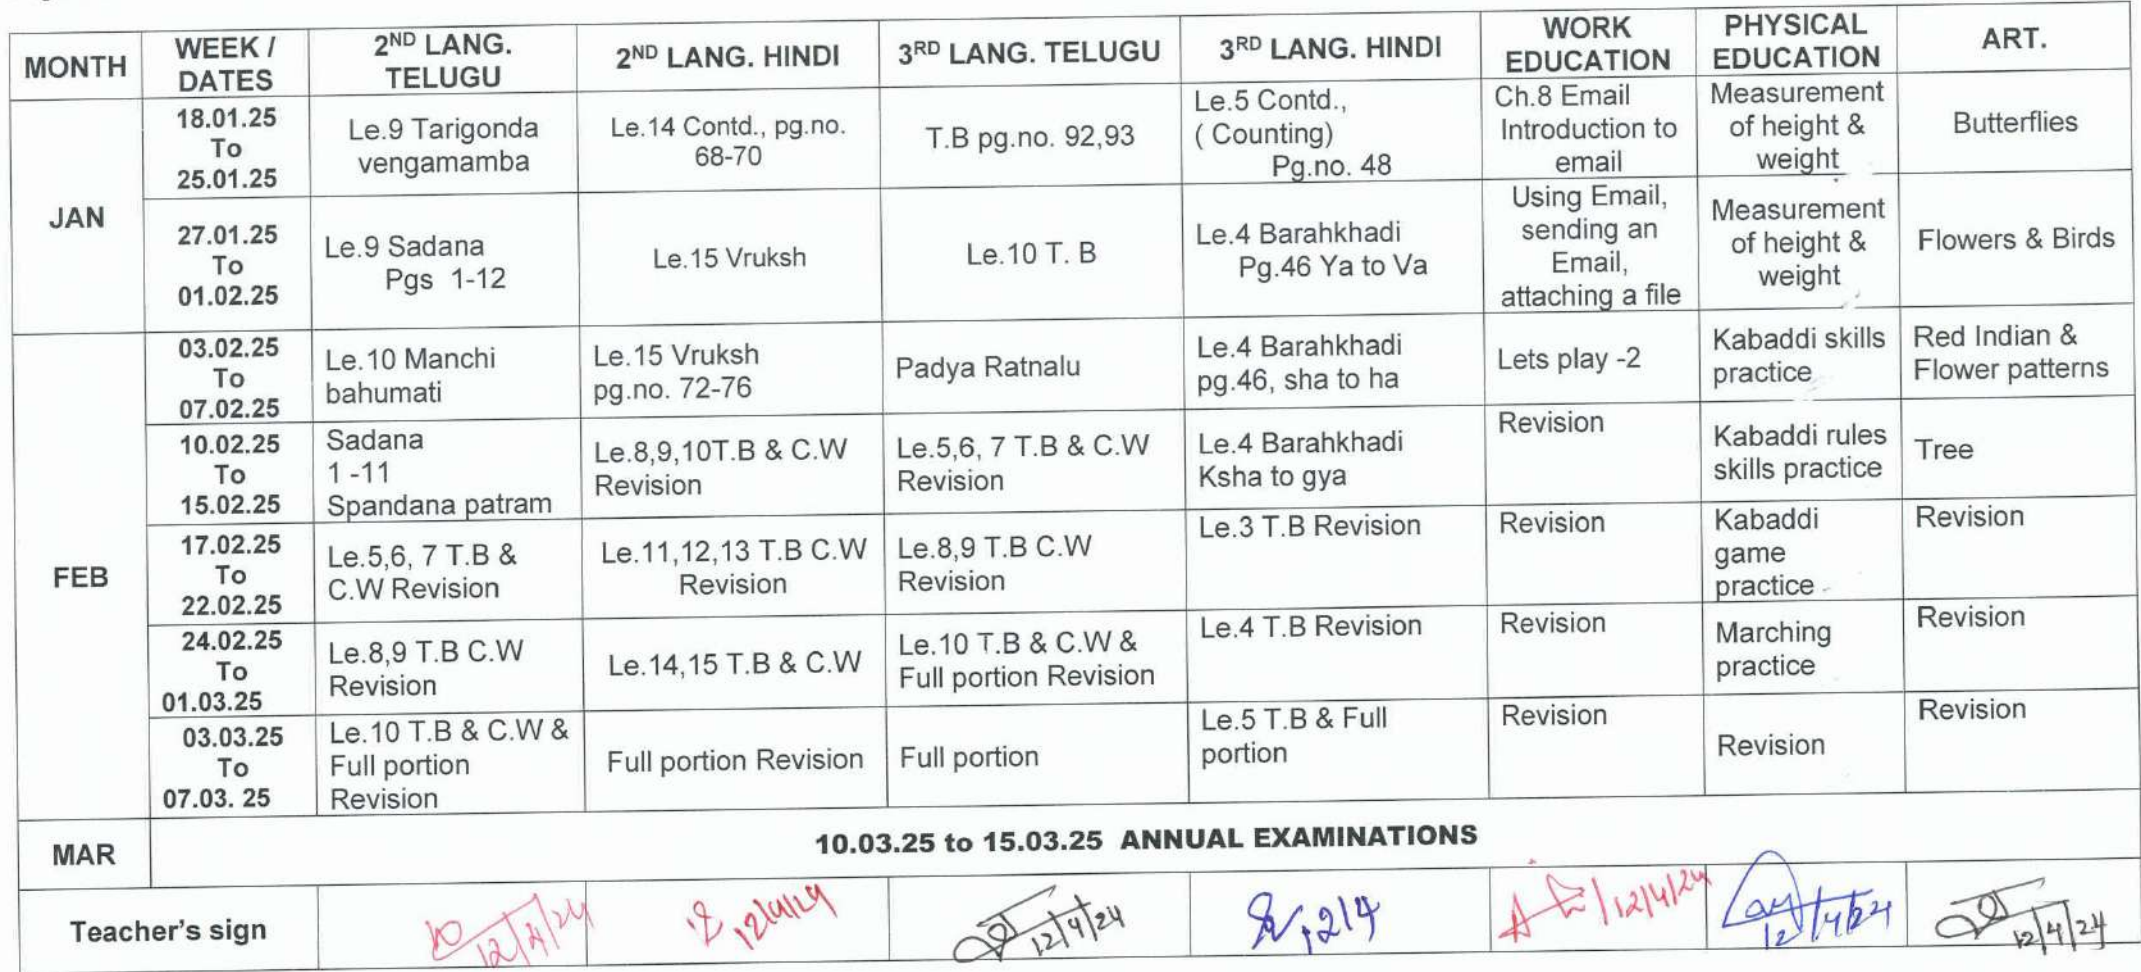 MONTH
WEEK /
DATES
2ND LANG.
TELUGU
2ND LANG. HINDI
3RD LANG. TELUGU
3RD LANG. HINDI
WORK
EDUCATION
PHYSICAL
EDUCATION
ART.
JAN
18.01.25
To
25.01.25
Le.9 Tarigonda
vengamamba
Le.14 Contd., pg.no.
68-70
T.B pg.no. 92,93
Le.5 Contd.,
( Counting)
Pg.no. 48
Ch.8 Email
Introduction to
email
Measurement
of height &
weight
Butterflies
27.01.25
To
01.02.25
Le.9 Sadana
Pgs 1-12
Le.15 Vruksh
Le.10 T. B
Le.4 Barahkhadi
Pg.46 Ya to Va
Using Email,
sending an
Email,
attaching a file
Measurement
of height &
weight
Flowers & Birds
FEB
03.02.25
To
07.02.25
Le.10 Manchi
bahumati
Le.15 Vruksh
pg.no. 72-76
Padya Ratnalu
Le.4 Barahkhadi
pg.46, sha to ha
Lets play -2
Kabaddi skills
practice
Red Indian &
Flower patterns
10.02.25
To
15.02.25
Sadana
1 -11
Spandana patram
Le.8,9,10T.B & C.W
Revision
Le.5,6, 7 T.B & C.W
Revision
Le.4 Barahkhadi
Ksha to gya
Revision
Kabaddi rules
skills practice
Tree
17.02.25
To
22.02.25
Le.5,6, 7 T.B &
C.W Revision
Le.11,12,13 T.B C.W
Revision
Le.8,9 T.B C.W
Revision
Le.3 T.B Revision
Revision
Kabaddi
game
practice
Revision
24.02.25
To
01.03.25
Le.8,9 T.B C.W
Revision
Le.14,15 T.B & C.W
Le.10 T.B & C.W &
Full portion Revision
Le.4 T.B Revision
Revision
Marching
practice
Revision
03.03.25
To
07.03. 25
Le.10 T.B & C.W &
Full portion
Revision
Full portion Revision
Full portion
Le.5 T.B & Full
portion
Revision
Revision
Revision
MAR
10.03.25 to 15.03.25 ANNUAL EXAMINATIONS
Teacher's sign
12/4/24
12/4/24
12/4/24
12/4
12/4/24
12/4/24
12/4/24